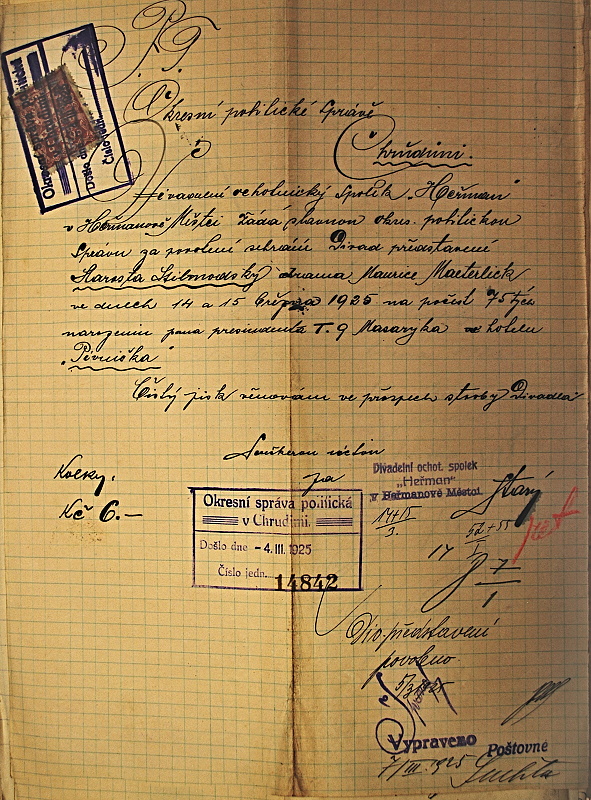 P. T.
Okresní politické Správě
v
Chrudimi.
ochotnický Spolek „Heřman"
v Heřmanově Městci žádá slavnou okres. politickou
Správu za povolení sehrání Divad představení
Starosta Stilmondský drama Maurice Maeterlick
ve dnech 14 a 15 března 1925 na počest 75 tých
narozenin pana presidenta T. G Masaryka v hotelu
„Pivnička"
Čistý zisk věnován ve prospěch stavby Divadla
úctou
za
Kolky.
Kč 6.—
Divadelní ochot. spolek
„Heřman"
v Heřmanově Městci.
Starý
14+15
3.
17
7
1
Okresní správa politická
v Chrudimi.
Došlo dne - 4. III. 1925
Číslo jedn. 14842
Div. představení
povoleno.
5/3 1925
Vypraveno
Poštovné
7/III. 1925